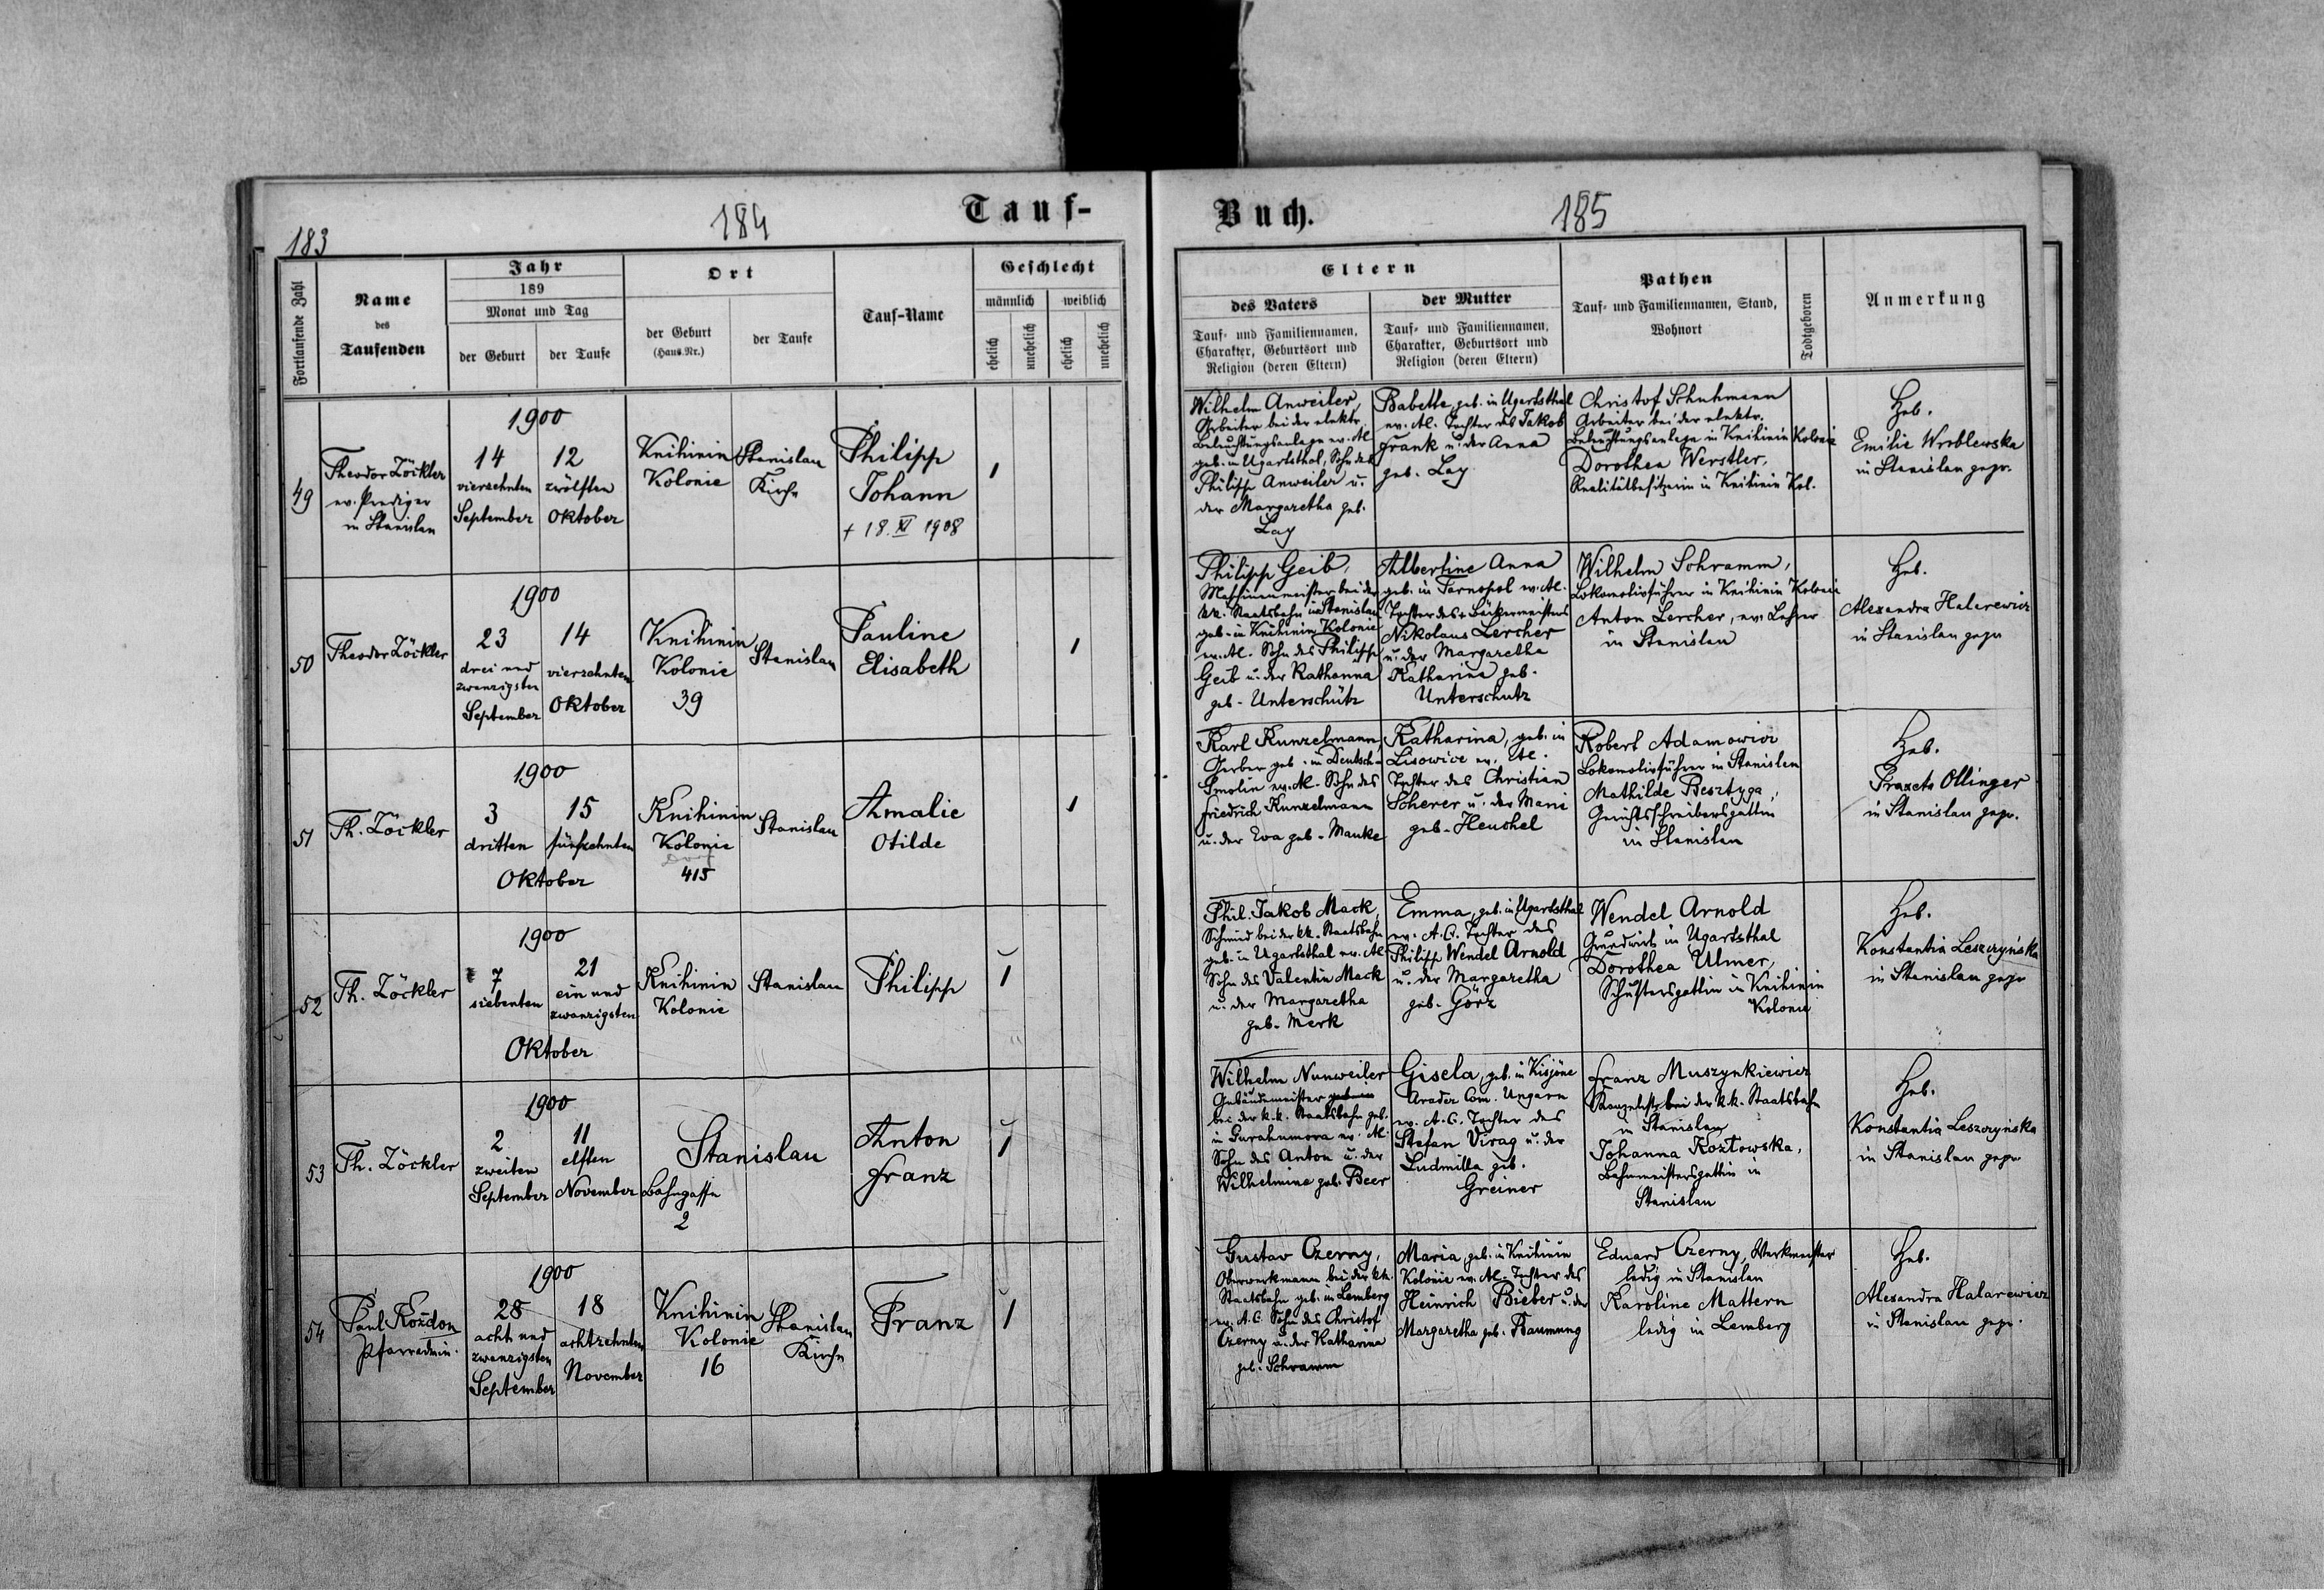 183
184
Tauf-
Fortlaufende Zahl
Name
des
Taufenden
Jahr
189
Monat und Tag
der Geburt
der Taufe
Ort
der Geburt
(Haus-Nr.)
der Taufe
Tauf-Name
Geschlecht
männlich
weiblich
ehelich
unehelich
ehelich
unehelich
49
Theodor Zöckler
ev. Prediger
in Stanislau
1900
14
vierzehnten
September
12
zwölften
Oktober
Knihinin
Kolonie
Stanislau
Kirche
Philipp
Johann
+ 18. XI 1908
1
50
Theodor Zöckler
1900
23
drei und
zwanzigsten
September
14
vierzehnten
Oktober
Knihinin
Kolonie
39
Stanislau
Pauline
Elisabeth
1
51
Th. Zöckler
1900
3
dritten
15
fünfzehnten
Oktober
Knihinin
Kolonie
Dorf
415
Stanislau
Amalie
Otilde
1
52
Th. Zöckler
1900
7
siebenten
21
ein und
zwanzigsten
Oktober
Knihinin
Kolonie
Stanislau
Philipp
1
53
Th. Zöckler
1900
2
zweiten
September
11
elften
November
Stanislau
Bahngasse
2
Anton
Franz
1
54
Paul Kozdon
Pfarradmin.
1900
28
acht und
zwanzigsten
September
18
achtzehnten
November
Knihinin
Kolonie
16
Stanislau
Kirche
Franz
1
Buch.
185
Eltern
des Vaters
Tauf- und Familiennamen,
Charakter, Geburtsort und
Religion (deren Eltern)
der Mutter
Tauf- und Familiennamen,
Charakter, Geburtsort und
Religion (deren Eltern)
Pathen
Tauf- und Familiennamen, Stand,
Wohnort
Todtgeboren
Anmerkung
Wilhelm Anweiler,
Arbeiter bei der elektr.
Beleuchtungsanlage ev. AC
geb. in Ugartsthal, Sohn des
Philipp Anweiler u.
der Margaretha geb.
Lay
Babette, geb. in Ugartsthal
ev. AC. Tochter des Jakob
Frank u. der Anna
geb. Lay
Christof Schuhmann
Arbeiter bei der elektr.
Beleuchtungsanlage in Knihinin Kolonie
Dorothea Werstler,
Realitätbesitzerin in Knihinin Kol.
Heb.
Emilie Wroblewska
in Stanislau gepr.
Philipp Geib,
Maschinenmeister bei der
kk. Staatsbahn in Stanislau
geb. in Knihinin Kolonie
ev. AC. Sohn des Philipp
Geib u. der Kathanna
geb. Unterschütz
Albertine Anna
geb. in Tarnopol ev. AC.
Tochter des + Bäckermeisters
Nikolaus Lercher
u. der Margaretha
Katharina geb.
Unterschutz
Wilhelm Schramm,
Lokomotivführer in Knihinin Kolonie
Anton Lercher, ev. Lehrer
in Stanislau
Heb.
Alexandra Halarewicz
in Stanislau gepr
Karl Kunzelmann,
Gerber geb. in Deutsch-
Smolin ev. AC. Sohn des
Friedrich Kunzelmann
u. der Eva geb. Manke
Katharina, geb. in
Lisowice ev. AC.
Tochter des Christian
Scherer u. der Marie
geb. Heuchel
Robert Adamowicz
Lokomotivführer in Stanislau
Mathilde Besztyga,
Gerichtsschreibersgattin
in Stanislau
Heb.
Ollinger
in Stanislau gepr.
Phil. Jakob Mack,
Schmied bei der kk. Staatsbahn
geb. in Ugartsthal ev. AC
Sohn des Valentin Mack
u. der Margaretha
geb. Merk
Emma, geb. in Ugartsthal
ev. A.C. Tochter des
Philipp Wendel Arnold
u. der Margaretha
geb. Görz
Wendel Arnold
Grundwirt in Ugartsthal
Dorothea Ulmer,
Schustersgattin in Knihinin
Kolonie
Heb.
Konstantia Leszczyńska
in Stanislau gepr
Wilhelm Nunweiler
Gebäudemeister
bei der k.k. Staatsbahn geb.
in Gurahumora ev. AC.
Sohn des Anton u. der
Wilhelmine geb. Beer
Gisela, geb. in Kisjöne
Arader Com. Ungarn
ev. A.C. Tochter des
Stefan Virag u. der
Ludmilla geb.
Greiner
Franz Muszynkiewicz
Kanzelist bei der k.k. Staatsbahn
in Stanislau
Johanna Kozłowska,
Bahnmeistersgattin in
Stanislau
Heb.
Konstantia Leszczyńska
in Stanislau gepr.
Gustav Czerny,
Oberwerkmann bei der kk.
Staatsbahn geb. in Lemberg
ev. A.C. Sohn des Christof
Czerny u. der Katharina
geb. Schramm
Maria, geb. in Knihinin
Kolonie ev. AC. Tochter des
Heinrich Bieber u. der
Margaretha geb. Baumung
Eduard Czerny, Werkmeister
ledig in Stanislau
Karoline Mattern
ledig in Lemberg
Heb.
Alexandra Halarewicz
in Stanislau gepr.